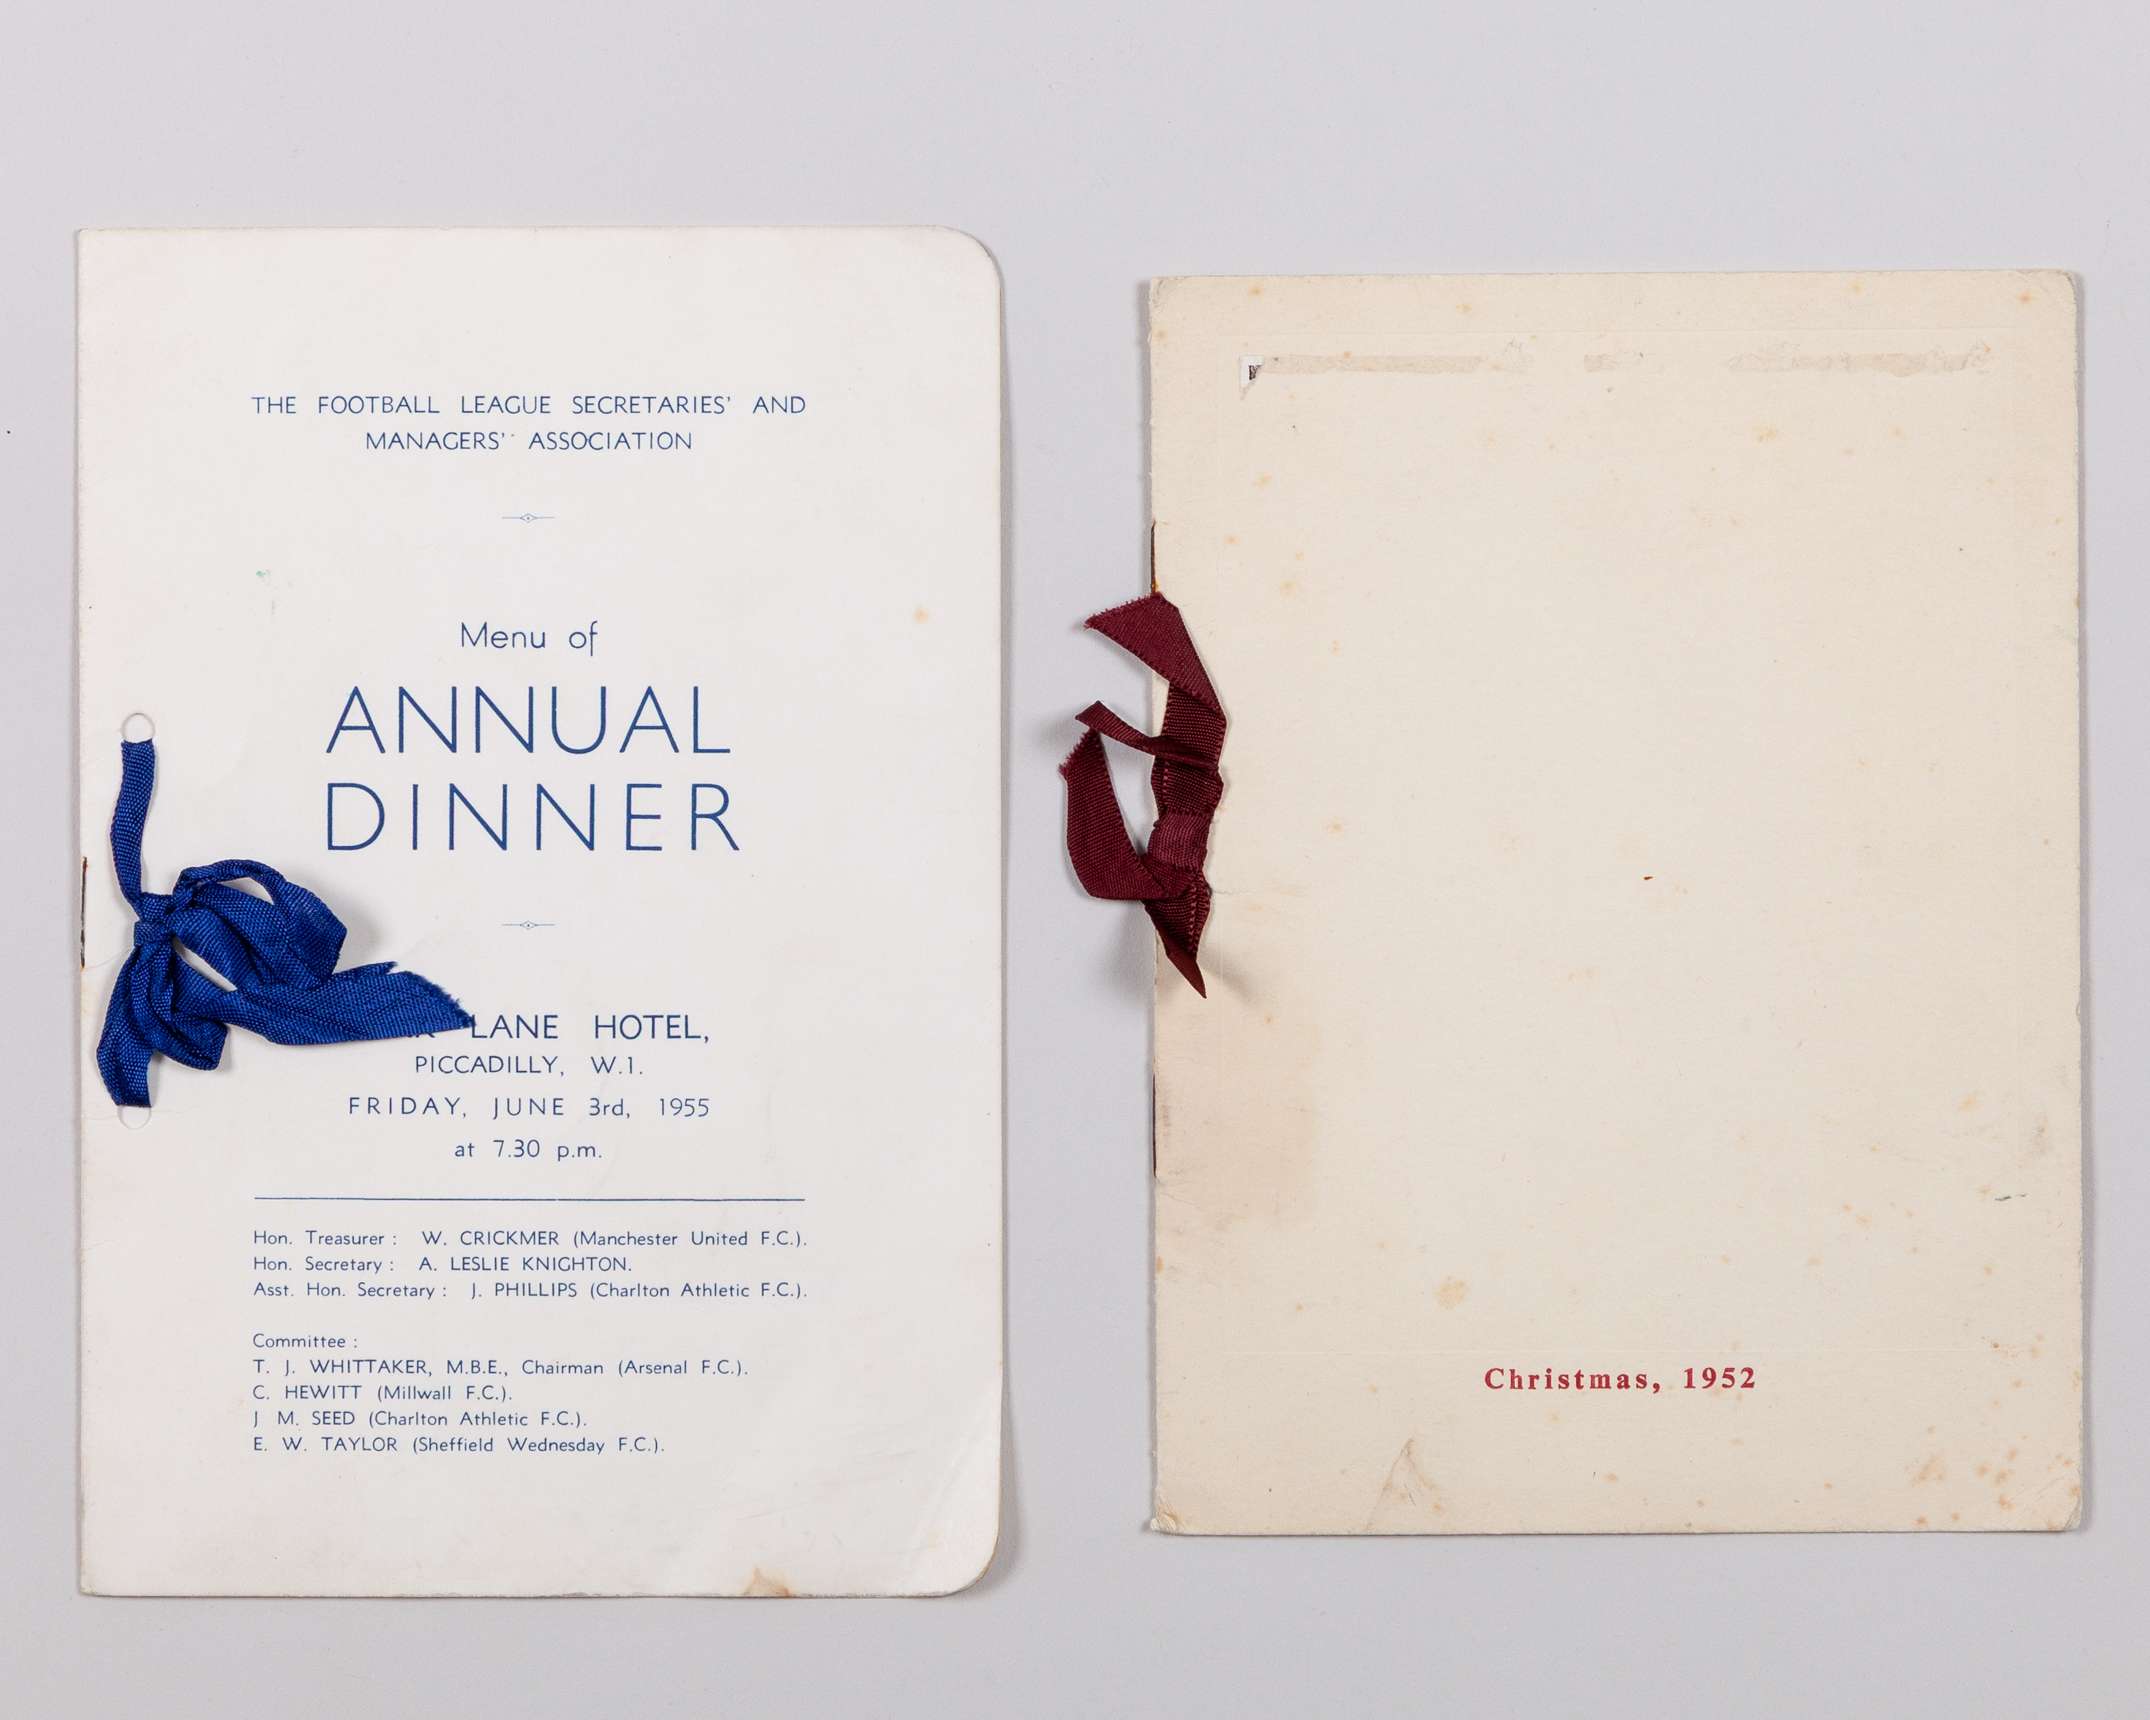 THE FOOTBALL LEAGUE SECRETARIES' AND
MANAGERS' ASSOCIATION
Menu of
ANNUAL
DINNER
LANE HOTEL,
PICCADILLY, W.1.
FRIDAY, JUNE 3rd, 1955
at 7.30 p.m.
Hon. Treasurer : W. CRICKMER (Manchester United F.C.).
Hon. Secretary : A. LESLIE KNIGHTON.
Asst. Hon. Secretary : J. PHILLIPS (Charlton Athletic F.C.).
Committee :
T. J. WHITTAKER, M.B.E., Chairman (Arsenal F.C.).
C. HEWITT (Millwall F.C.).
J M. SEED (Charlton Athletic F.C.).
E. W. TAYLOR (Sheffield Wednesday F.C.).
Christmas, 1952